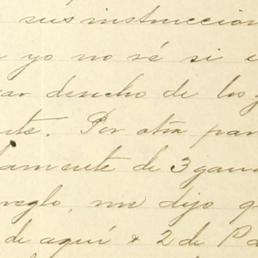 sus instruccion
yo no sé si e
ar derecho de los g
nte. Por otra par
damente de 3 gana
reglo, me dijo q
de aquí & 2 de Pa